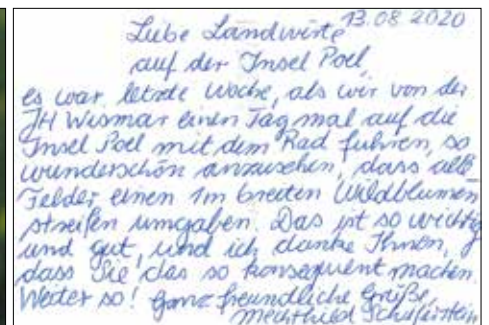 13.08 2020
Liebe Landwirte
auf der Insel Poel,
es war letzte Woche, als wir von der
JH Wismar einen Tag mal auf die
Insel Poel mit dem Rad fuhren, so
wunderschön anzusehen, dass alle
Felder einen 1m breiten Wildblumen
streifen umgaben. Das ist so wichtig
und gut, und ich danke Ihnen,
dass Sie das so konsequent machen.
Weiter so! Ganz freundliche Grüße,
Mechthild